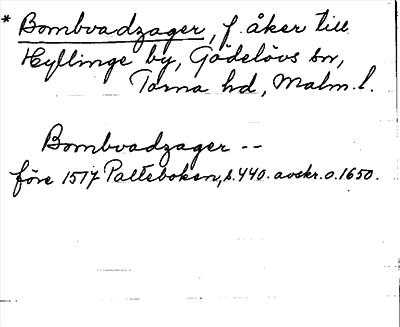 * Bombvadzager, f. åker till
Hyllinge by, Gödelövs sn,
Torna hd, Malm. l.
Bombvadzager --
före 1517 Palteboken, s. 440. avskr. o. 1650.